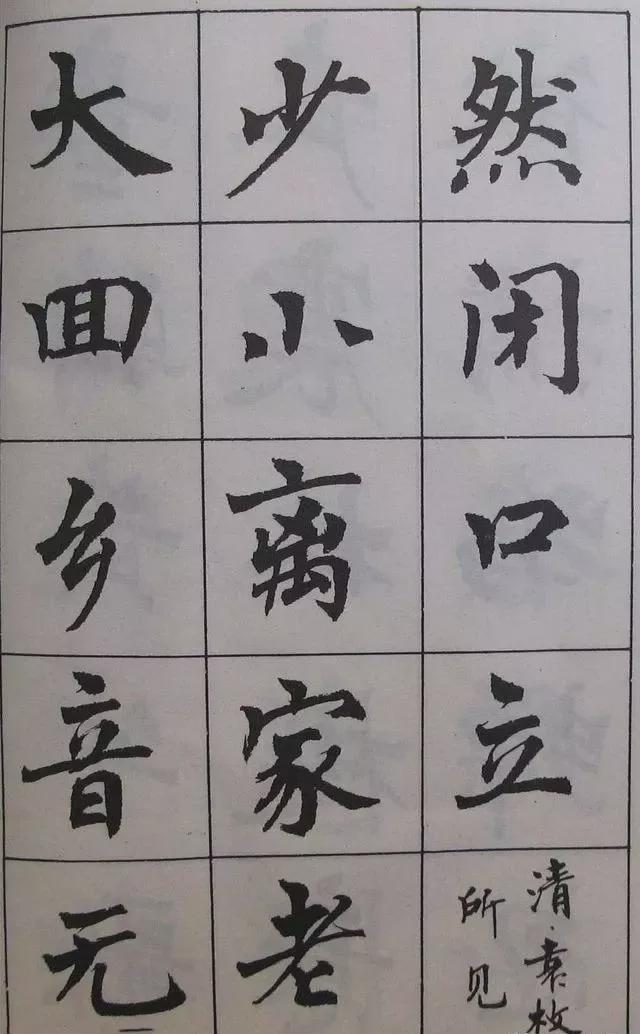 然闭口立
清·袁枚
所见
少小离家老
大囬乡音无